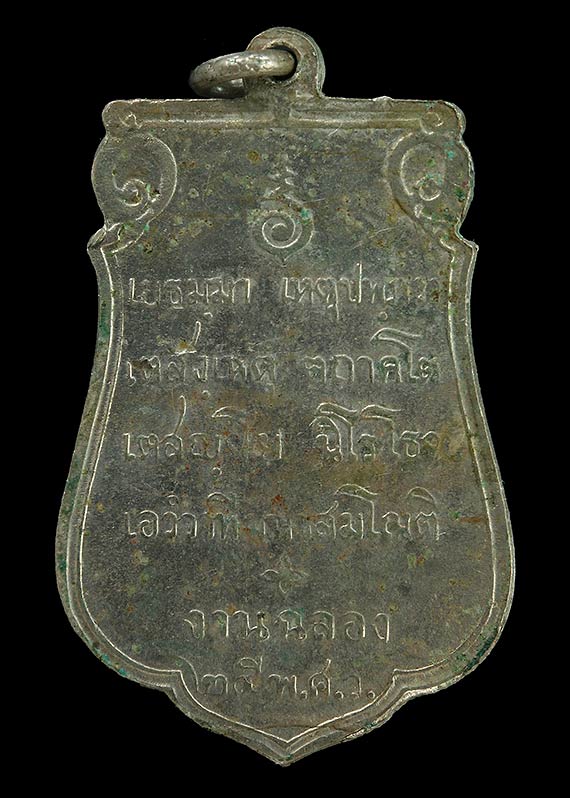 เยธมฺมา เหตุปฺปภวา
เตสํเหตุ ตถาคโต
เตสญฺ นิโรโธจ
เอวํวาที สมโณติ
งานฉลอง
๒๕ พ.ศ.ว.